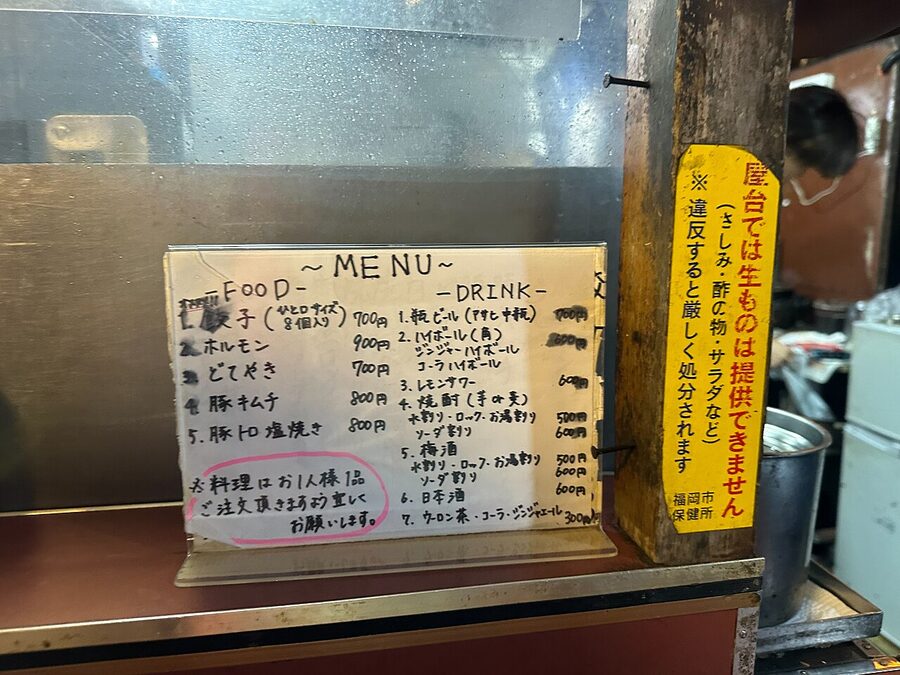 ~ MENU ~
-FOOD-
1. 餃子(ひと口サイズ 8個入り) 700円
2. ホルモン 900円
3. どてやき 700円
4. 豚キムチ 800円
5. 豚トロ塩焼き 800円
※料理はお1人様1品
ご注文頂きますよう宜しく
お願いします。
-DRINK-
1. 瓶ビール(アサヒ中瓶) 700円
2. ハイボール(角) 600円
ジンジャーハイボール
コーラハイボール
3. レモンサワー 600円
4. 焼酎(芋or麦)
水割り・ロック・お湯割り 500円
ソーダ割り 600円
5. 梅酒
水割り・ロック・お湯割り 500円
ソーダ割り 600円
6. 日本酒 600円
7. ウーロン茶・コーラ・ジンジャエール 300円
屋台では生ものは提供できません
(さしみ・酢の物・サラダなど)
※違反すると厳しく処分されます
福岡市
保健所